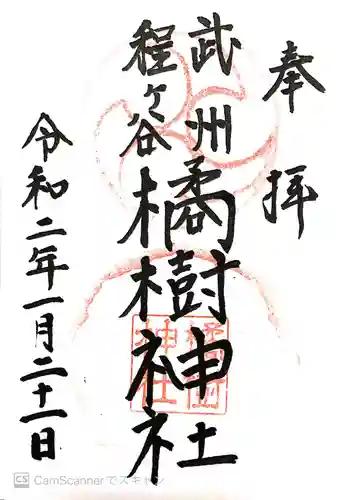 奉拝
武州
程ヶ谷
橘樹神社
令和二年一月二十一日
橘樹
神社
CS CamScannerでスキャン